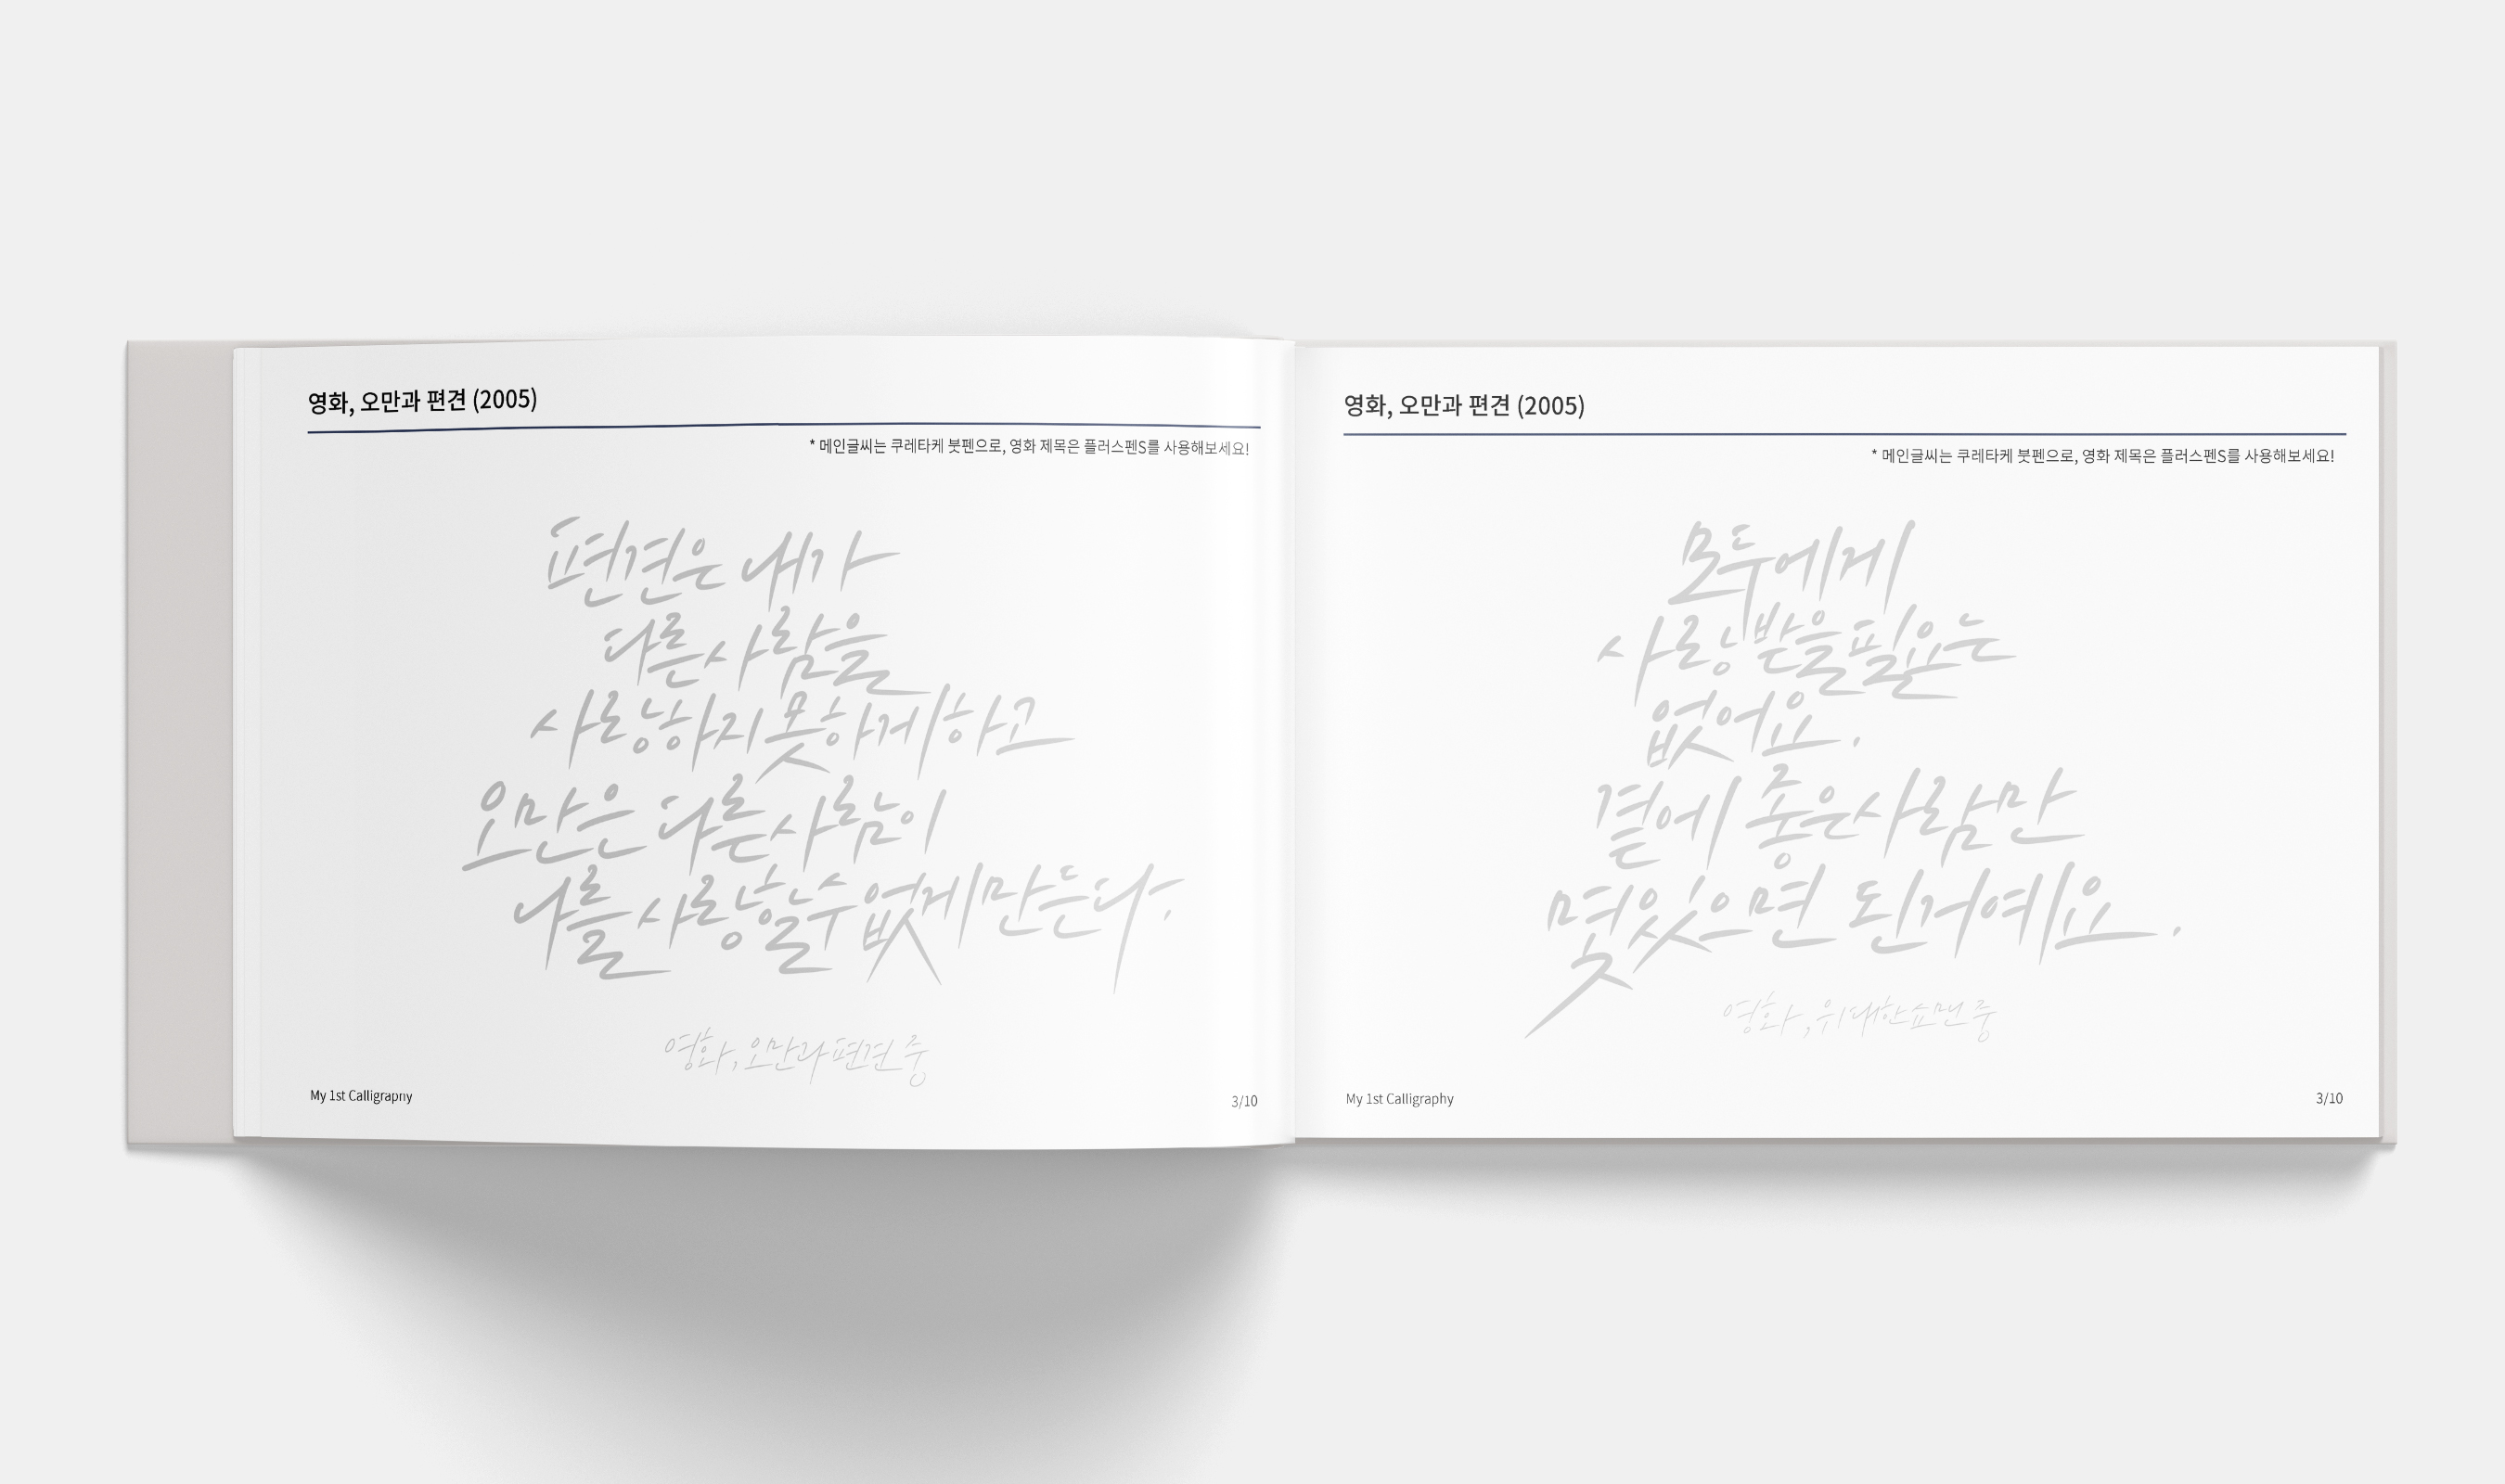 영화, 오만과 편견 (2005)
* 메인글씨는 쿠레타케 붓펜으로, 영화 제목은 플러스펜S를 사용해보세요!
편견은 내가
다른 사람을
사랑하지 못하게 하고
오만은 다른 사람이
나를 사랑할 수 없게 만든다.
영화, 오만과 편견 중
My 1st Calligraphy
3/10
영화, 오만과 편견 (2005)
* 메인글씨는 쿠레타케 붓펜으로, 영화 제목은 플러스펜S를 사용해보세요!
모두에게
사랑받을 필요는
없어요.
곁에 좋은 사람만
몇 있으면 된 거예요.
영화, 위대한 쇼맨 중
My 1st Calligraphy
3/10